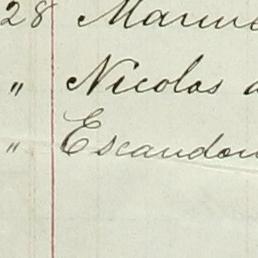 28 Manue
" Nicolas a
" Escandon